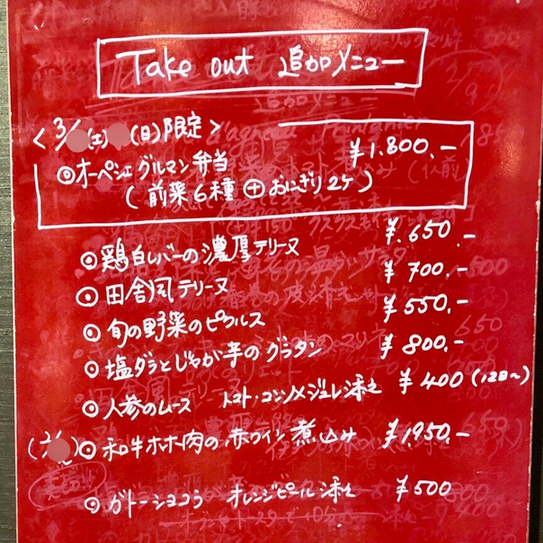 Take out 追加メニュー
<3/ (土) (日)限定>
◎オーペシェグルマン弁当 ¥1,800.-
(前菜6種⊕おにぎり2ケ)
◎鶏白レバーの濃厚テリーヌ ¥.650.-
◎田舎風テリーヌ ¥700.-
◎旬の野菜のピクルス ¥550.-
◎塩ダラとじゃが芋のグラタン ¥800.-
◎人参のムース トマト・コンソメジュレ添え ¥400(12日〜)
◎和牛ホホ肉の赤ワイン煮込み ¥1,950.-
◎ガトーショコラ オレンジピール添え ¥500